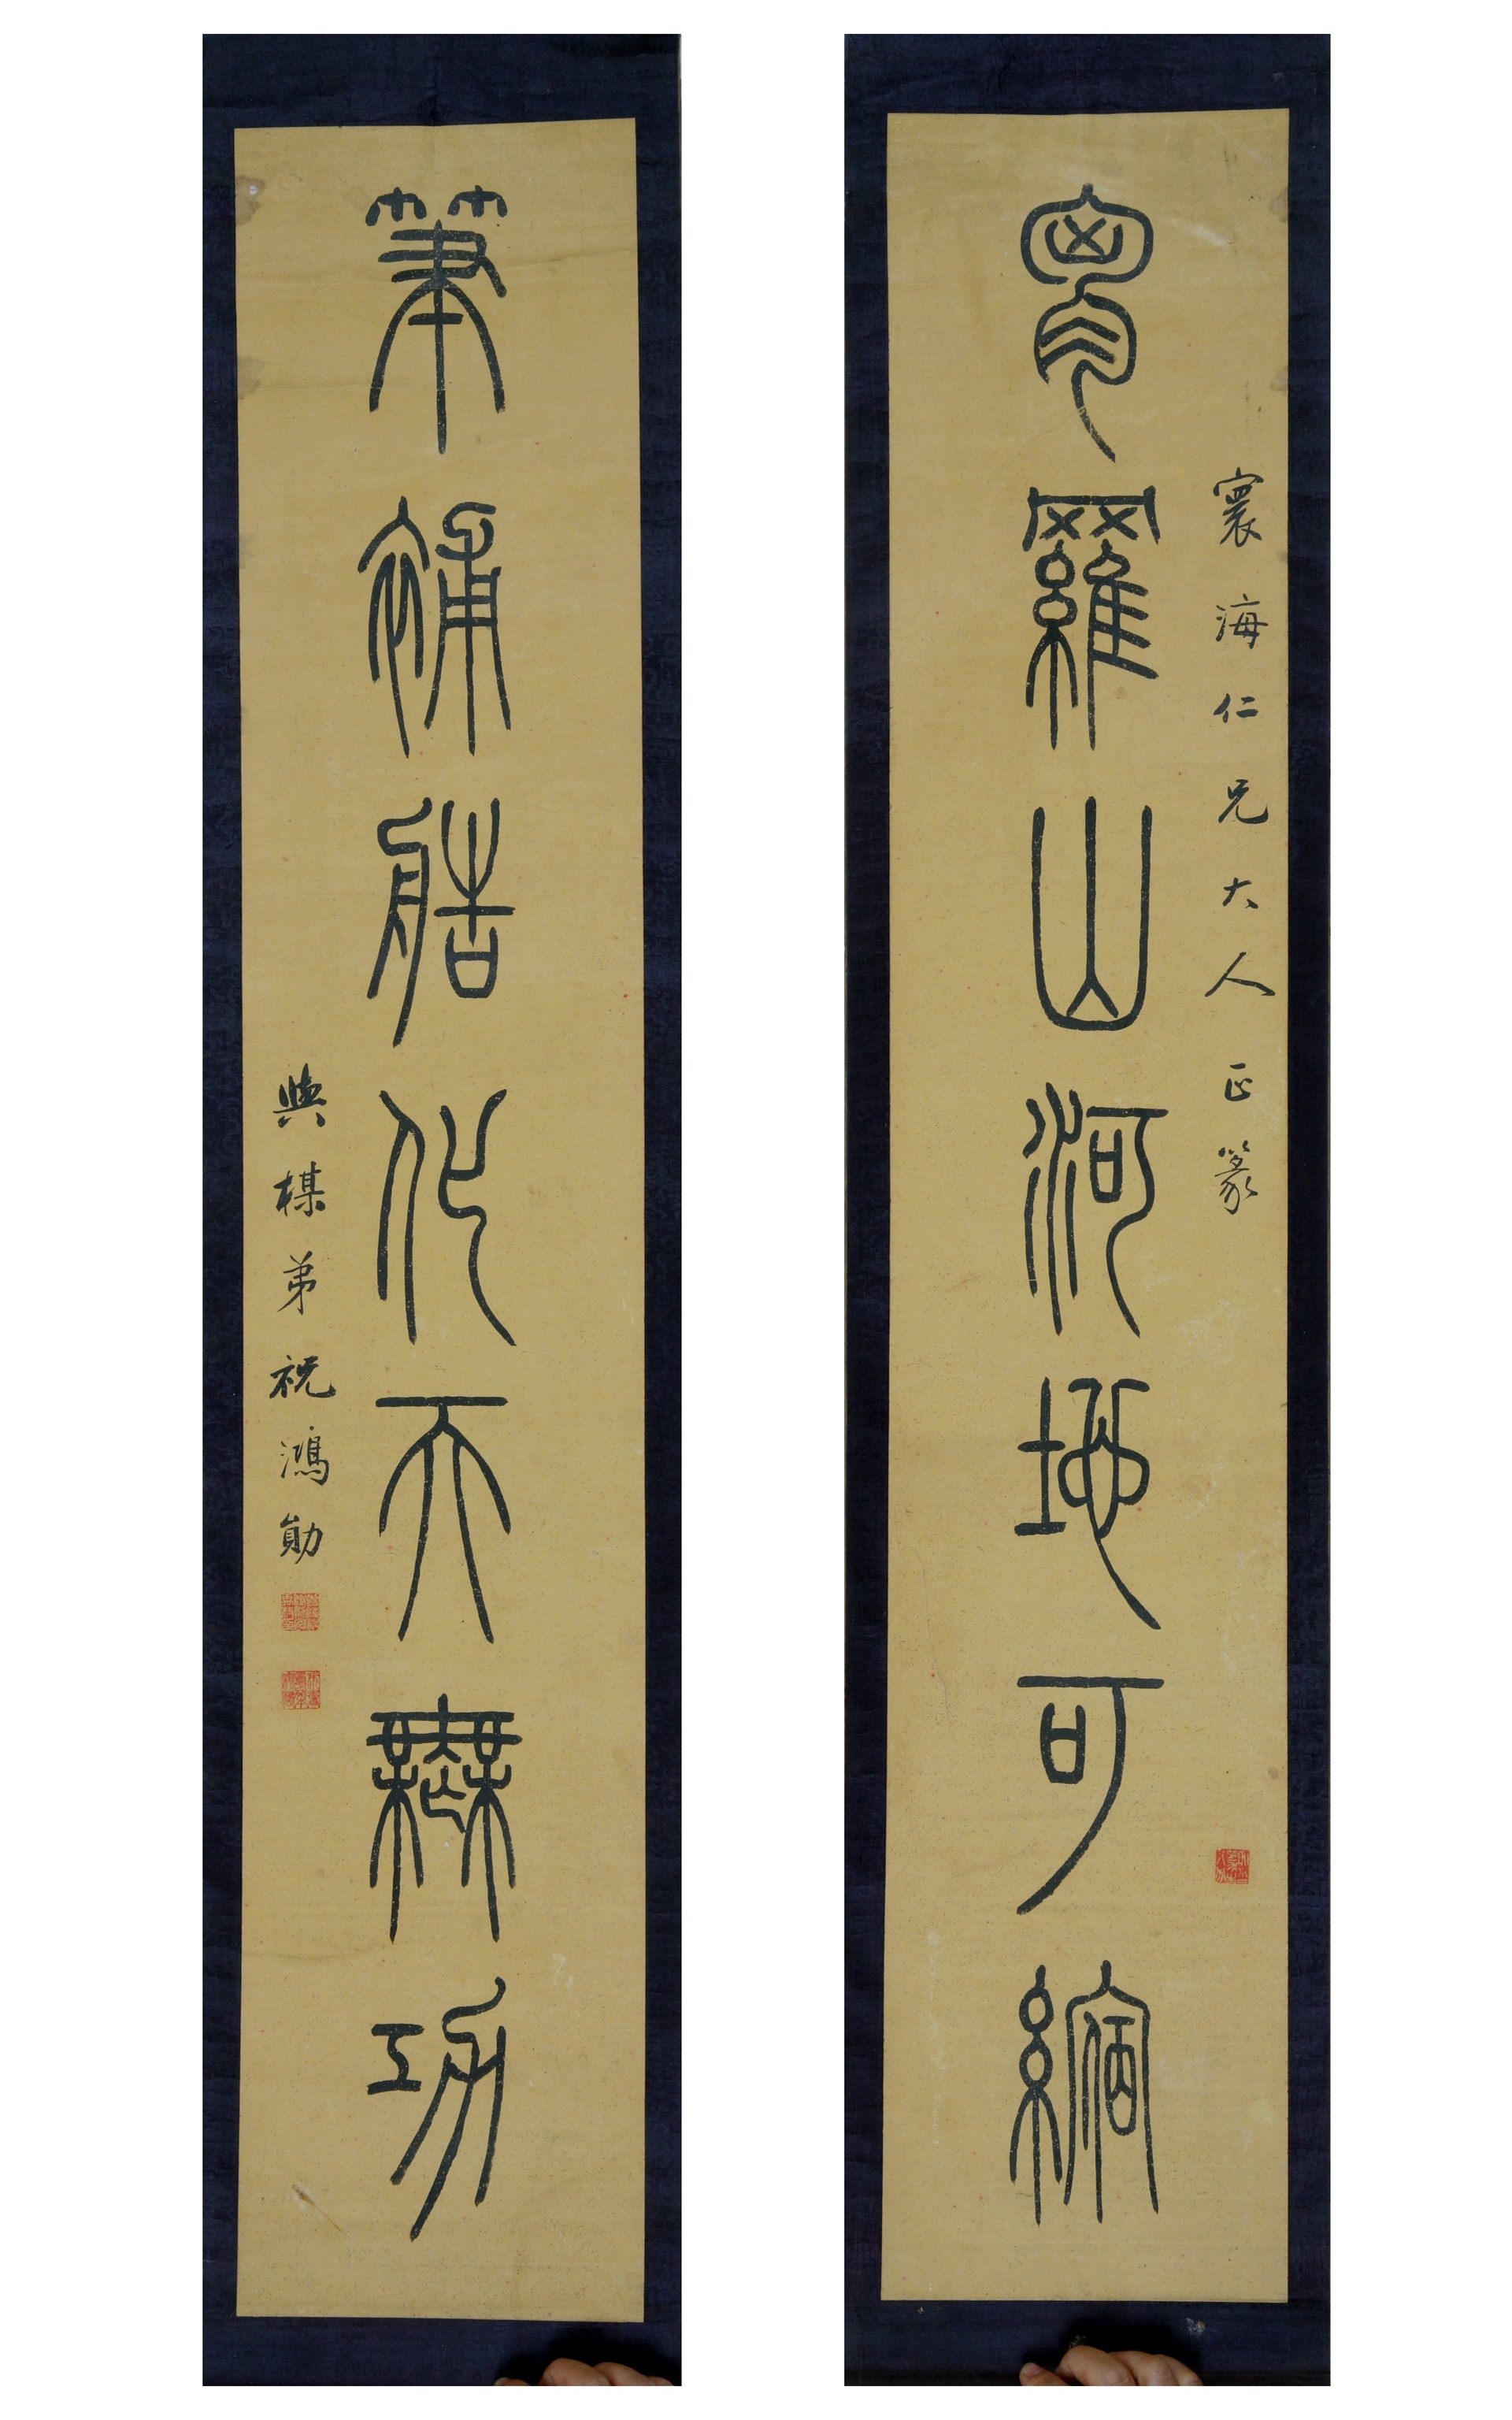 胷羅山河地可縮
寰海仁兄大人正篆
筆補艁化天無功
楳弟祝鴻勛